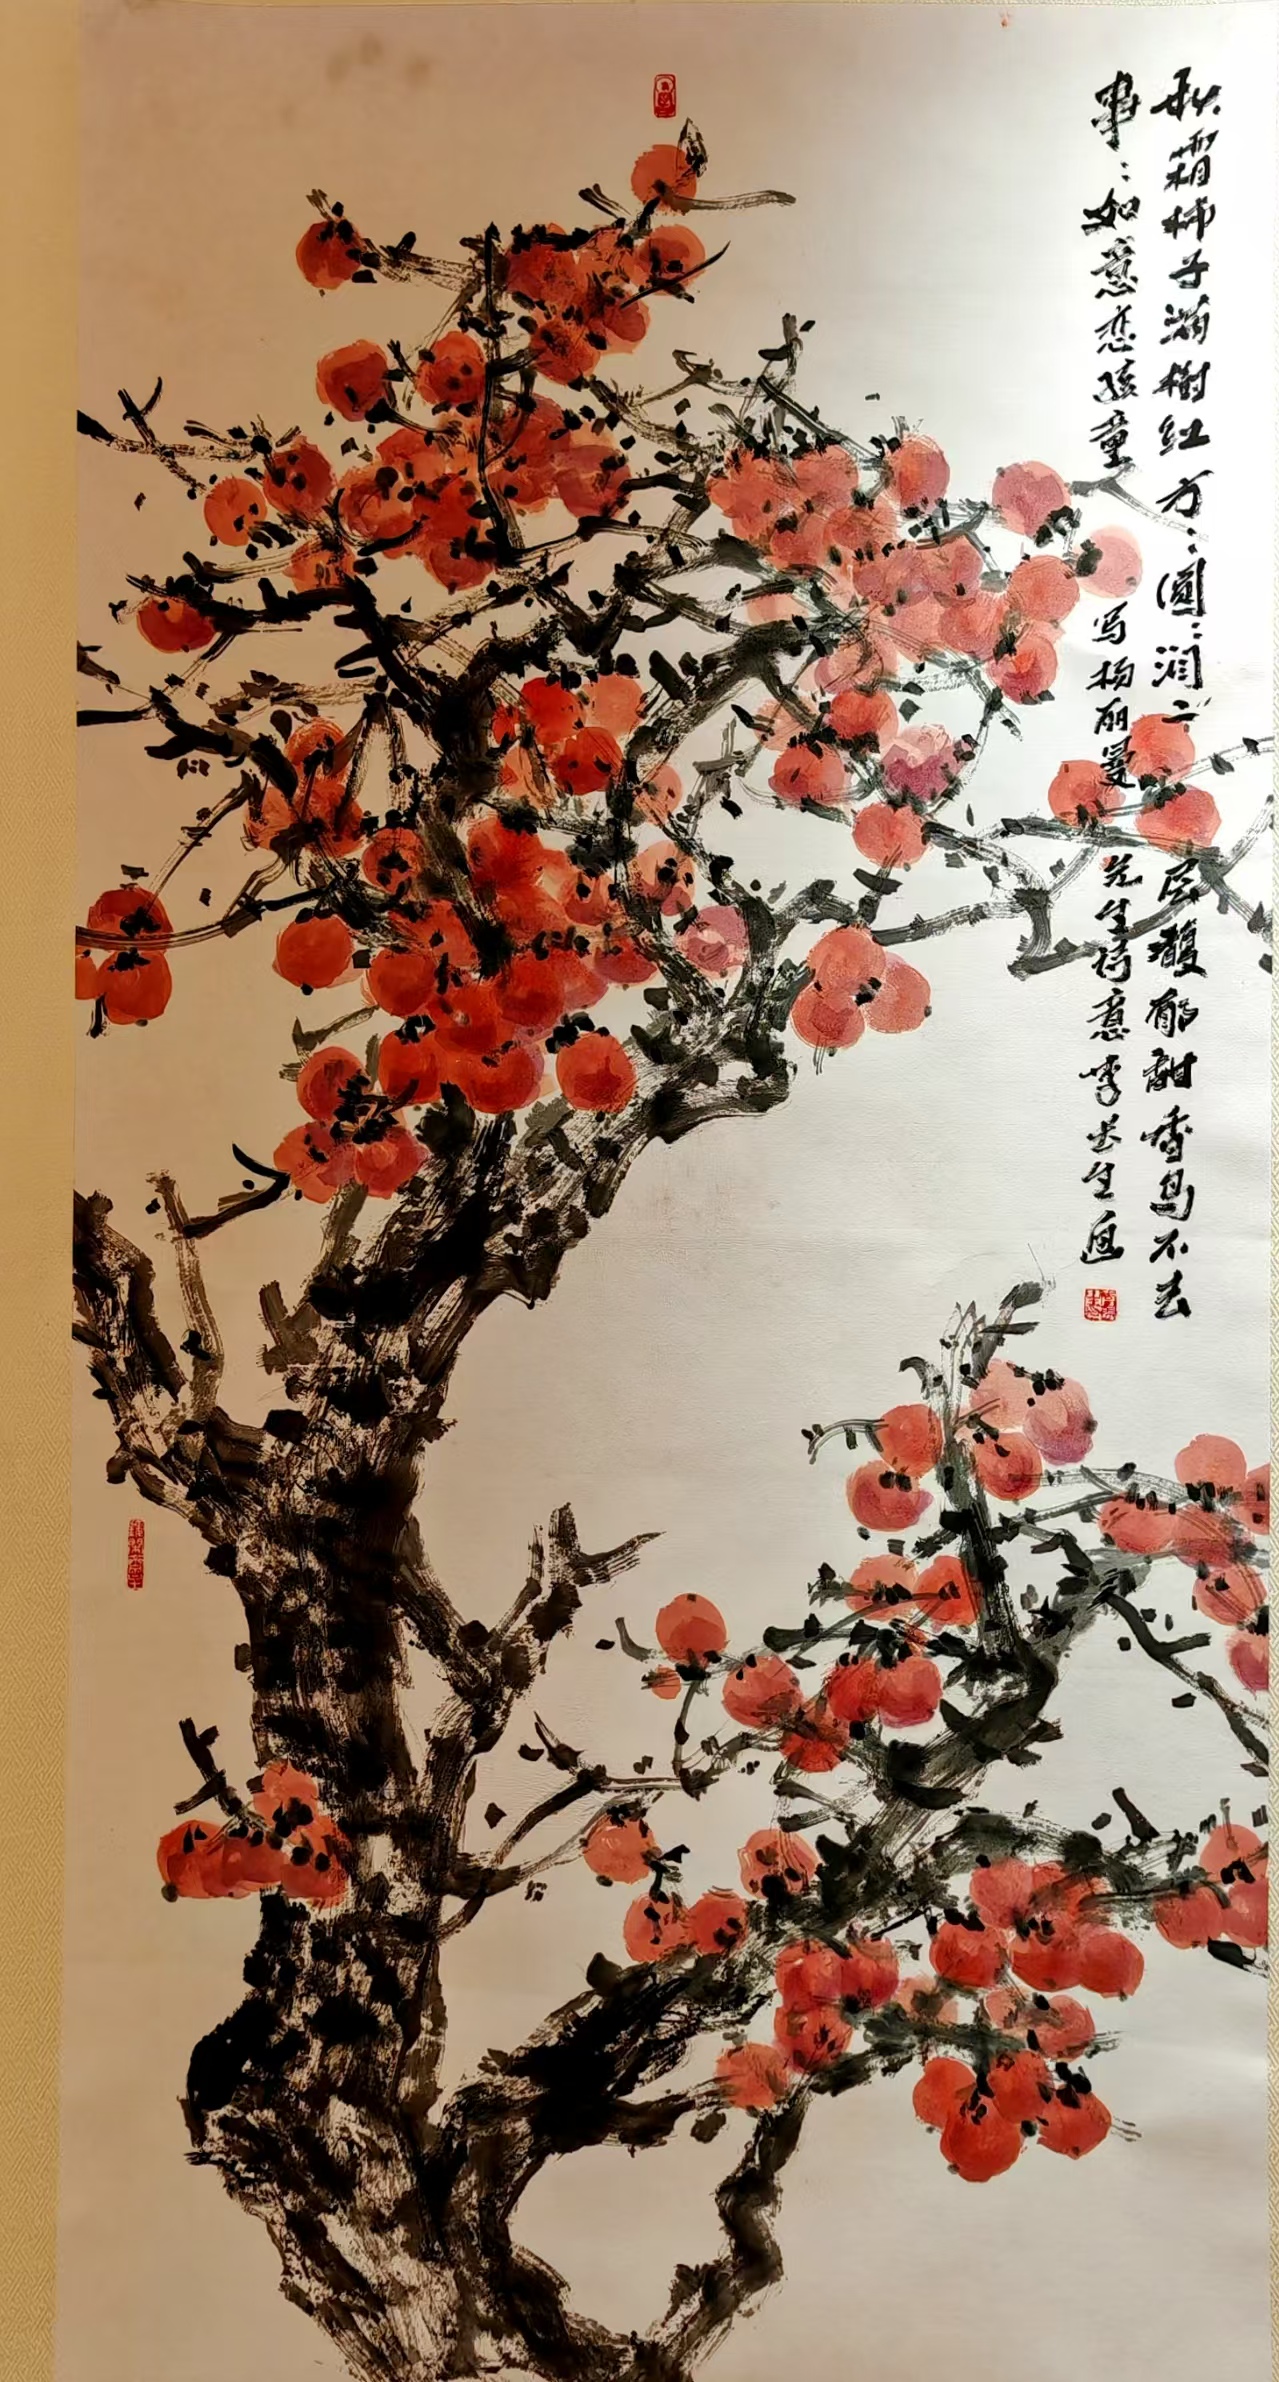 秋霜柿子满樹红方方圆圆润二〻 馥郁甜香鸟不去
事事如意恋孩童 写杨丽曼先生诗意李长生画